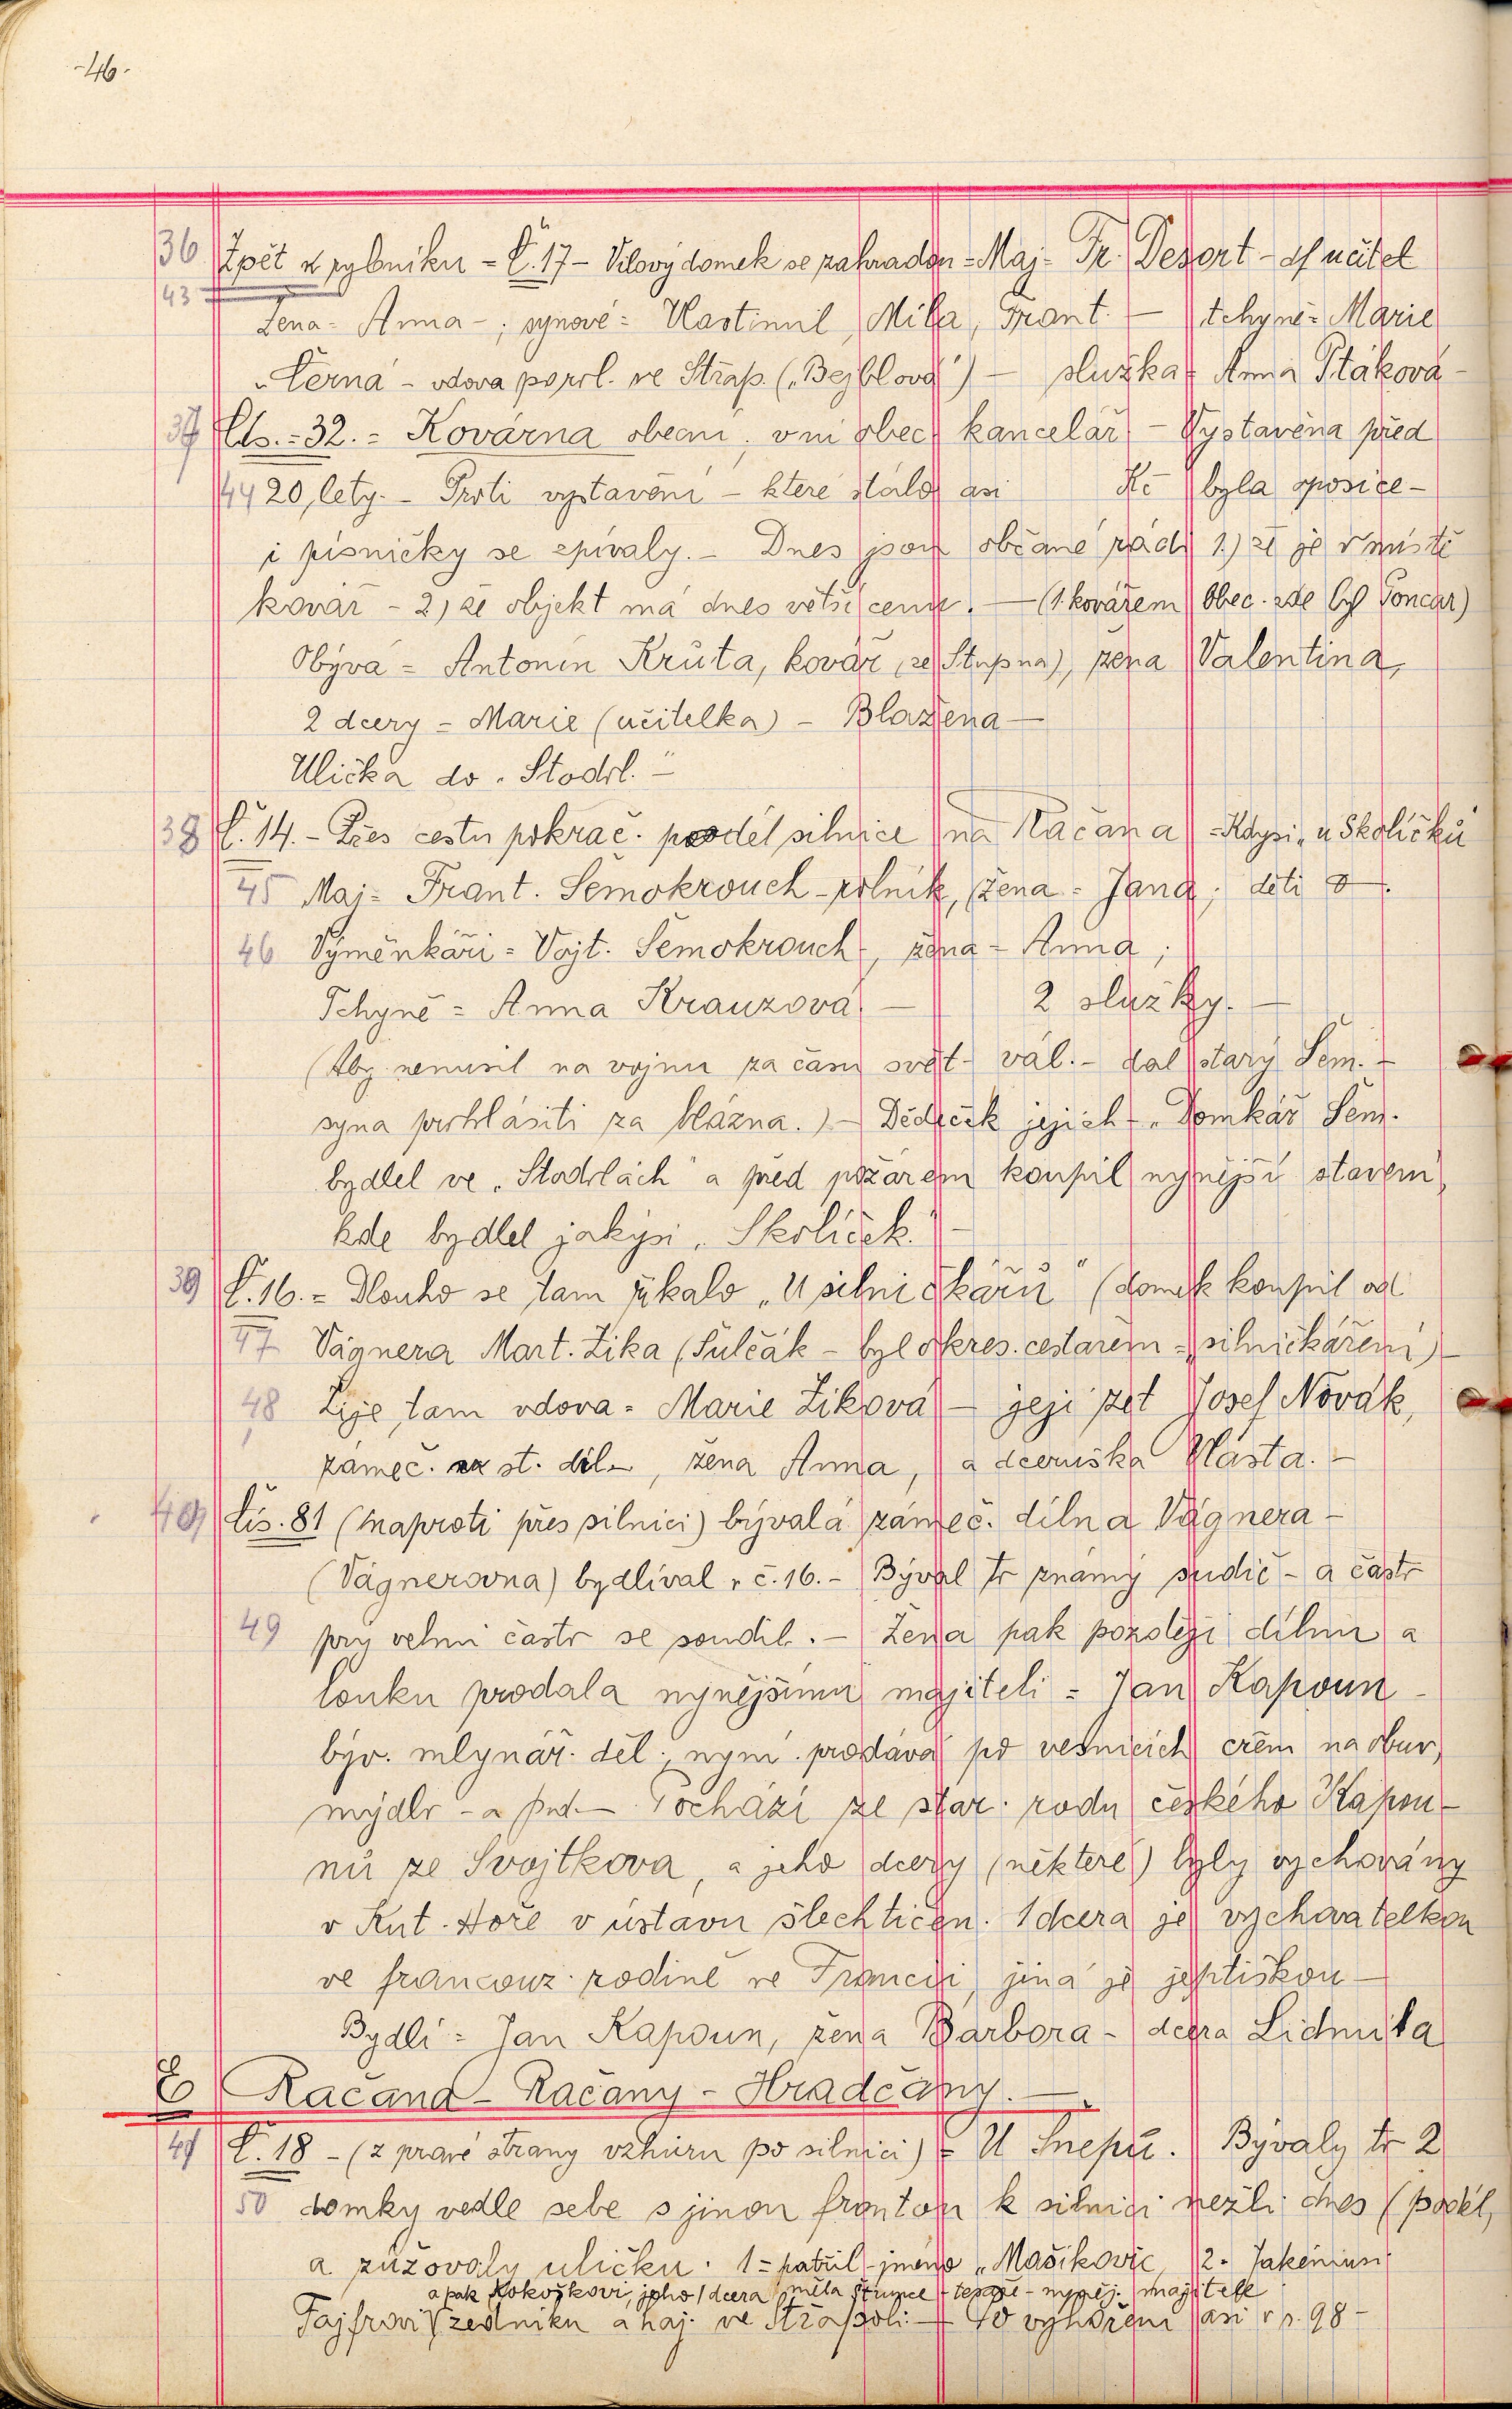 -46-
36 Zpět k rybníku = Č. 17 - Vilový domek se zahradou = Maj = Fr. Desort - učitel
43 Žena = Anna - ; synové = Vlastimil, Míla, Frant. - tchyně = Marie
Černá - vdova ve Střap. („Bejblová") - služka = Anna Ptáková -
37 Čís. = 32. = Kovárna obecní, v ní obec. kancelář - Vystavěna před
44 20 lety. - Proti vystavění - které stálo asi Kč byla oposice -
i písničky se zpívaly. - Dnes jsou občané rádi 1.) že je v místě
kovář - 2.) že objekt má dnes větší cenu. - (1. kovářem obec. zde byl Goncar)
Obývá = Antonín Krůta, kovář (ze Stupna), žena Valentina,
2 dcery = Marie (učitelka) - Blažena -
Ulička do „Stodol." -
38 Č. 14. - Přes cestu pokrač. podél silnice na Račana = Kdysi „u Školíčků"
45 Maj = Frant. Šemokrouch - rolník, žena = Jana; děti 0 -.
46 Výměnkáři = Vojt. Šemokrouch, žena = Anna;
Tchyně = Anna Krauzová - 2 služky. -
(Aby nemusil na vojnu za času svět. vál. - dal starý Šem. -
syna prohlásiti za blázna.) - Dědeček jejich - „Domkář Šem.
bydlel ve „Stodolách" a před požárem koupil nynější stavení,
kde bydlel jakýsi „Školíček." -
39 Č. 16. = Dlouho se tam říkalo „U silničkářů" (domek koupil od
47 Vágnera Mart. Zika (Šulčák - byl okres. cestářem = „silničkářem") -
48 Žije tam vdova = Marie Ziková - její zeť Josef Novák,
zámeč. st. díl., žena Anna, a dceruška Vlasta. -
40 Čís. 81 (naproti přes silnici) bývalá zámeč. dílna Vágnera -
(Vágnerovna) bydlíval v č. 16. - Býval to známý sudič - a často
49 prý velmi často se soudil. - Žena pak později dílnu a
louku prodala nynějšímu majiteli = Jan Kapoun -
býv. mlynář. děl.; nyní prodává po vesnicích crém na obuv,
mýdlo - a pod. - Pochází ze star. rodu českého Kapou-
nů ze Svojtkova, a jeho dcery (některé) byly vychovány
v Kut. Hoře v ústavu šlechtičen. 1 dcera je vychovatelkou
ve francouz. rodině ve Francii, jiná je jeptiškou -
Bydlí = Jan Kapoun, žena Barbora - dcera Lidmila
E Račana - Račany - Hradčany. -
41 Č. 18 - (z pravé strany vzhůru po silnici) = U Šnepů. Bývaly to 2
50 domky vedle sebe s jinou frontou k silnici nežli dnes (podél,
a zužovaly uličku. 1 = patřil - jméno „Mašíkovic, 2 =
a pak Kokoškovi, jeho 1 dcera měla - nyněj. majitele
Fajfrovi zedníku a haj. ve Střapoli - Po vyhoření asi v r. 98 -